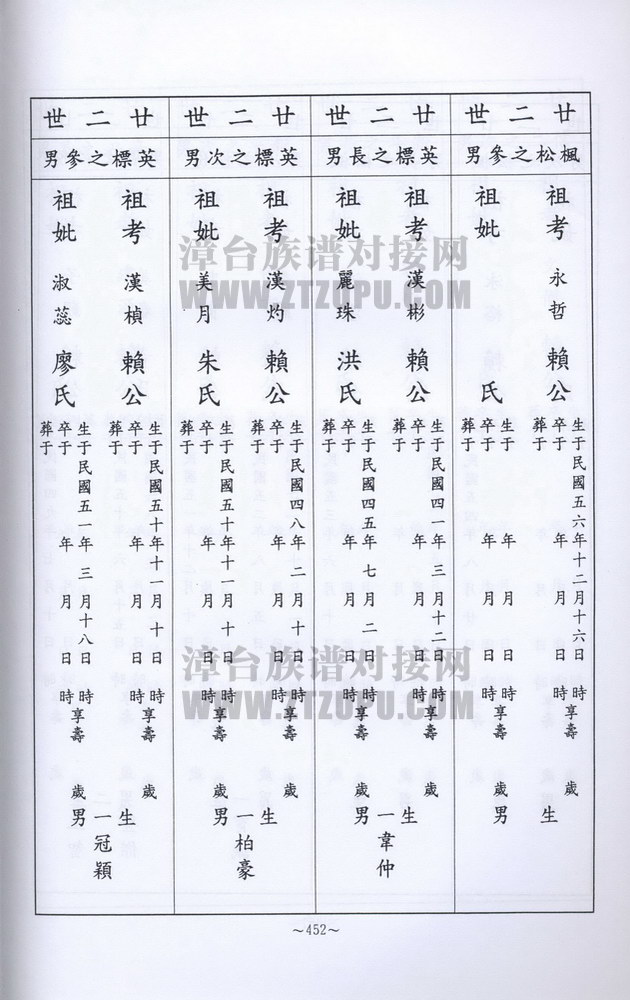 廿二世
楓松之參男
祖考 永哲 賴公
生于民國五六年十二月十六日 時享壽 歲
卒于 年 月 日 時
葬于
祖妣 氏
生于 年 月 日 時享壽 歲
卒于 年 月 日 時
葬于
生 男
廿二世
英標之長男
祖考 漢彬 賴公
生于民國四一年三月十二日 時享壽 歲
卒于 年 月 日 時
葬于
祖妣 麗珠 洪氏
生于民國四五年七月二日 時享壽 歲
卒于 年 月 日 時
葬于
生一男
韋仲
廿二世
英標之次男
祖考 漢灼 賴公
生于民國四八年二月十日 時享壽 歲
卒于 年 月 日 時
葬于
祖妣 美月 朱氏
生于民國五十年十一月十日 時享壽 歲
卒于 年 月 日 時
葬于
生一男
柏豪
廿二世
英標之參男
祖考 漢楨 賴公
生于民國五十年十一月十日 時享壽 歲
卒于 年 月 日 時
葬于
祖妣 淑蕊 廖氏
生于民國五一年三月十八日 時享壽 歲
卒于 年 月 日 時
葬于
生一男
冠穎
~452~
漳台族谱对接网
WWW.ZTZUPU.COM
漳台族谱对接网
WWW.ZTZUPU.COM